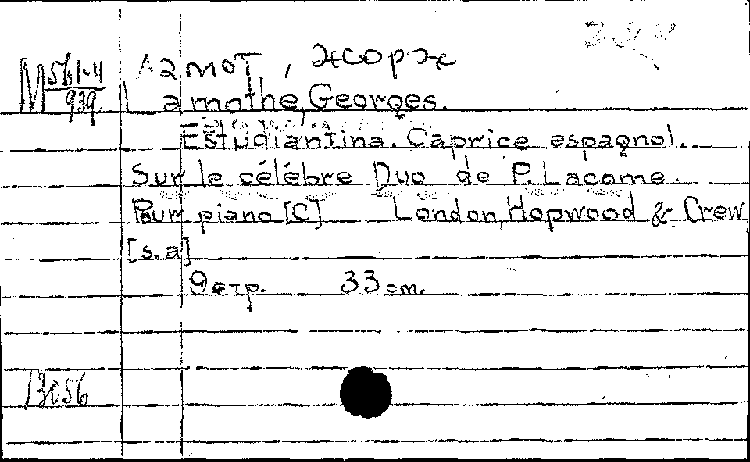 Ламот, Жорж
М 561-4
939
Lamothe, Georges.
Estudiantina. Caprice espagnol.
Sur le célèbre Duo de P. Lacome.
Pour piano [C] London, Hopwood & Crew
[s.a]
9 стр. 33 cm.